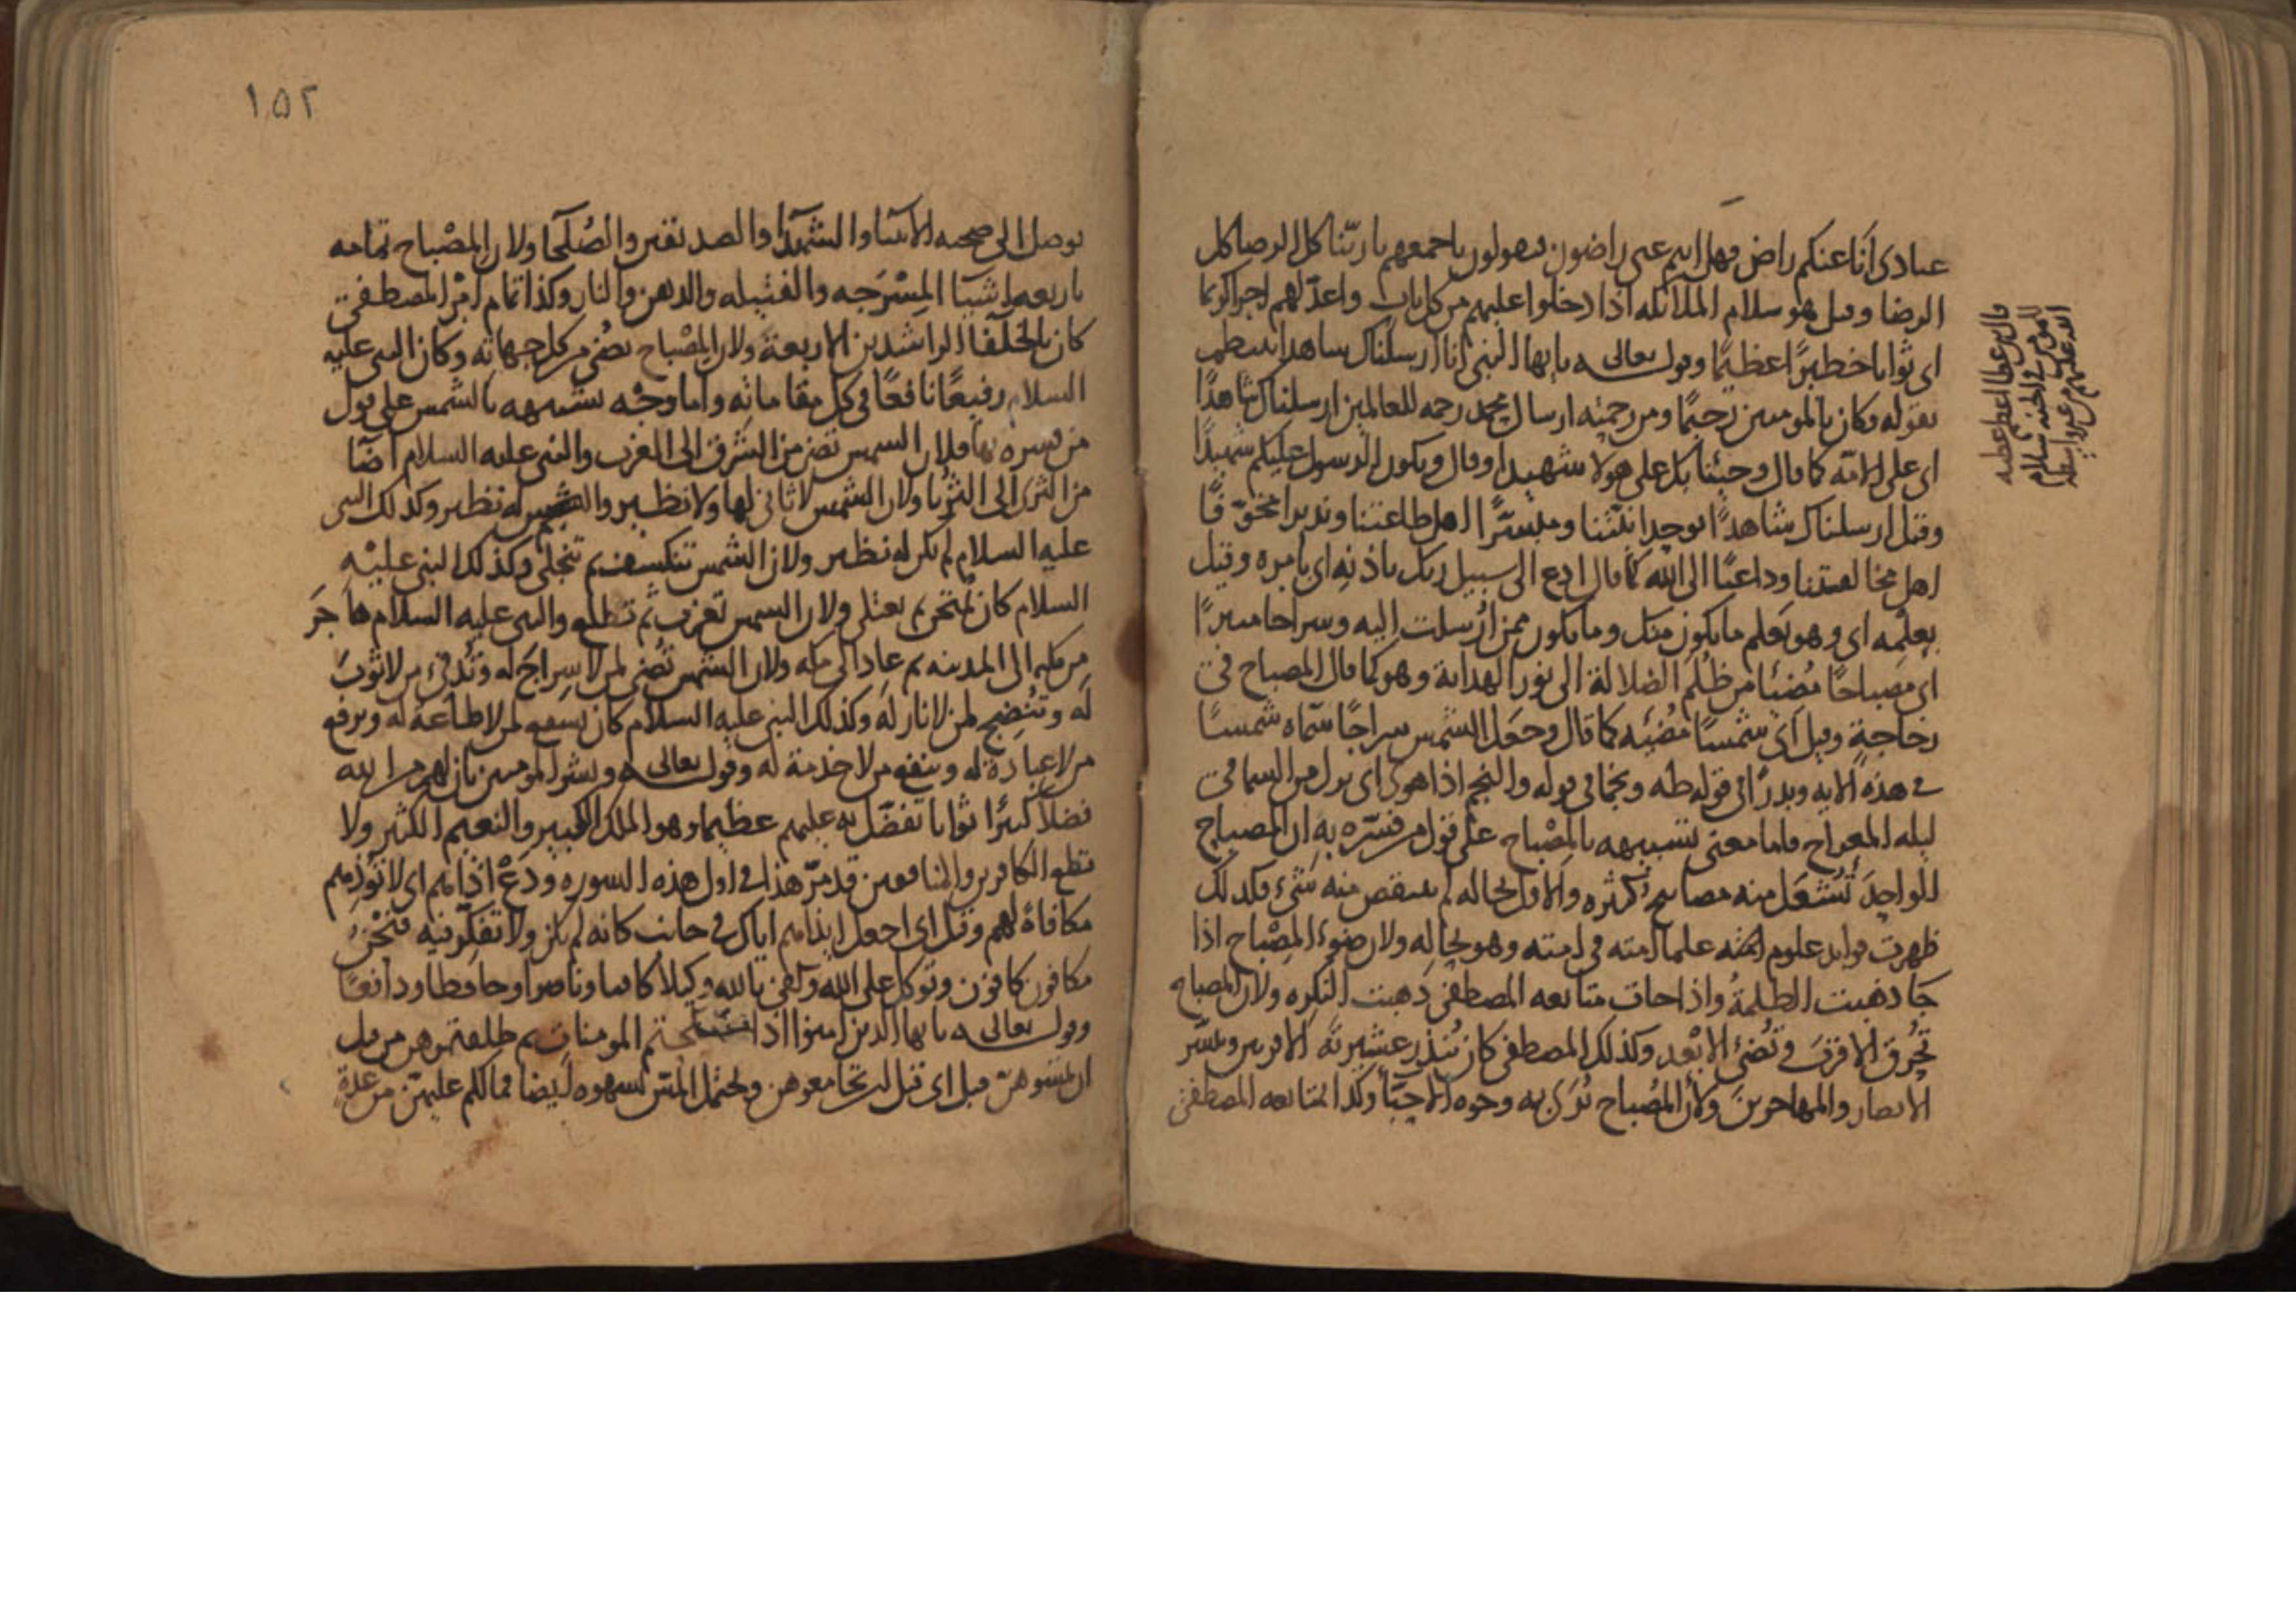 عبادى أنا عنكم راض فهل انتم عنى راضون فيقولون باجمعهم يا ربنا كل الرضا كل
الرضا وقيل هو سلام الملائكه اذا دخلوا عليهم من كل باب واعدّ لهم اجرا كريما
اى ثوابا خطيرًا عظيمًا وقوله تعالى يا ايها النبى انا ارسلناك شاهدا
بقوله وكان بالمومنين رحيمًا ومن رحمته ارسال محمد رحمه للعالمين ارسلناك شاهدًا
اى على الامّه كما قال وجئنا بك على هولا شهيدا وقال ويكون الرسول عليكم شهيدًا
وقيل ارسلناك شاهدًا بوحدانيّتنا ومبشرًا اهل طاعتنا ونذيرا
اهل مخالفتنا وداعيًا الى الله كما قال ادع الى سبيل ربك باذنه اى بامره وقيل
بعلمه اى وهو يعلم ما يكون منك وما يكون ممن ارسلت اليه وسراجا منيرًا
اى مصباحًا مُضيئا من ظُلَم الضلالة الى نور الهداية وهو كما قال المصباح فى
زجاجةٍ وقيل اى شمسًا مُضيئه كما قال وجعل الشمس سراجًا سمّاه شمسًا
فى هذه الايه وبدرًا فى قوله طه ونجما فى قوله والنجم اذا هوى اى نزل من السما فى
ليله المعراج فاما معنى تشبيهه بالمِصْباح على قول من فسّره به ان المصباح
الواحِدَ تُشعَل منه مصابيح كثيره والاول بحاله لم ينتقص منه شىء فكذلك
ظهرت فوايد علوم علما امته فى امته وهو بحاله ولان ضوء المِصْباح اذا
جَا ذهبت الظلمةُ واذا جات متابعه المصطفى ذهبت النكره ولان المصباح
تُحرِق الاقربَ وتُضىُ الابْعد وكذلك المصطفى كان يُنذِر عشيرتَه الاقربين ويبشّر
الانصار والمهاجرينَ ولأن المِصْباح تُرَى به وجوه الاحبّآ وكذا متابعه المصطفى
١٥٢
توصل الى صحبه الانبيا والشهدآ والصديقين والصُلَحآ ولان المِصْباح تمامه
باربعه اشيآ المِسْرَجه والفتيله والدهن والنار وكذا تمام امر المصطفى
كان بالخلفآ الراشدين الاربعة ولان المِصْباح يضُى من كل جهاته وكان النبى عليه
السلام رفيعًا نافعًا فى كل مقاماته واما وجْه تشبيهه بالشمس على قول
من فسره بها فلان الشمس تضى من الشرق الى الغرب والنبى عليه السلام اضآ
من الثرى الى الثريا ولان الشمس لا ثانى لها ولا نظير وكذلك النبى
عليه السلام لم يكن له نظير ولان الشمس تنكسف ثم تنجلى وكذلك النبى عليْه
السلام كان يُمتحن ثم يعتلى ولان الشمس تغرب ثم تطلع والنبى عليه السلام هاجَر
من مكه الى المدينه ثم عاد الى مكه ولان الشمس تُضى لمن لا سِراجَ له وتُدفىُ من لا ثوبَ
له وتُنضِج لمن لا نار له وكذلك النبى عليه السلام كان يشفع لمن لا طاعة له ويرفع
من لا عبادة له وينفع من لا خدمة له وقوله تعالى وبشر المومنين بان لهم من الله
فضلاً كبيرًا ثوابا تفضّل به عليهم عظيما وهو الملك الكبير والنعيم الكثير ولا
تطع الكافرين والمنافقين قد مرّ هذا فى اول هذه السوره ودَعْ اذاهم اى لا تُؤذِهم
مكافاةً لهم وقيل اى اجعل ايذاهم اياك فى جانب كانه لم يكن ولا تفكّر فيه فنَحْن
مكافون كافون وتوكل على الله وكفى بالله وكيلا كافيا وناصرا وحافظا ودافعًا
وقوله تعالى يا ايها الذين امنوا اذا نكحتم المومنات ثم طلقتموهن من قبل
ان تمسوهنّ قيل اى قبل ان تجامعوهن ويحتمل المسّ لشهوه ايضا فما لكم عليهنّ من عِدة